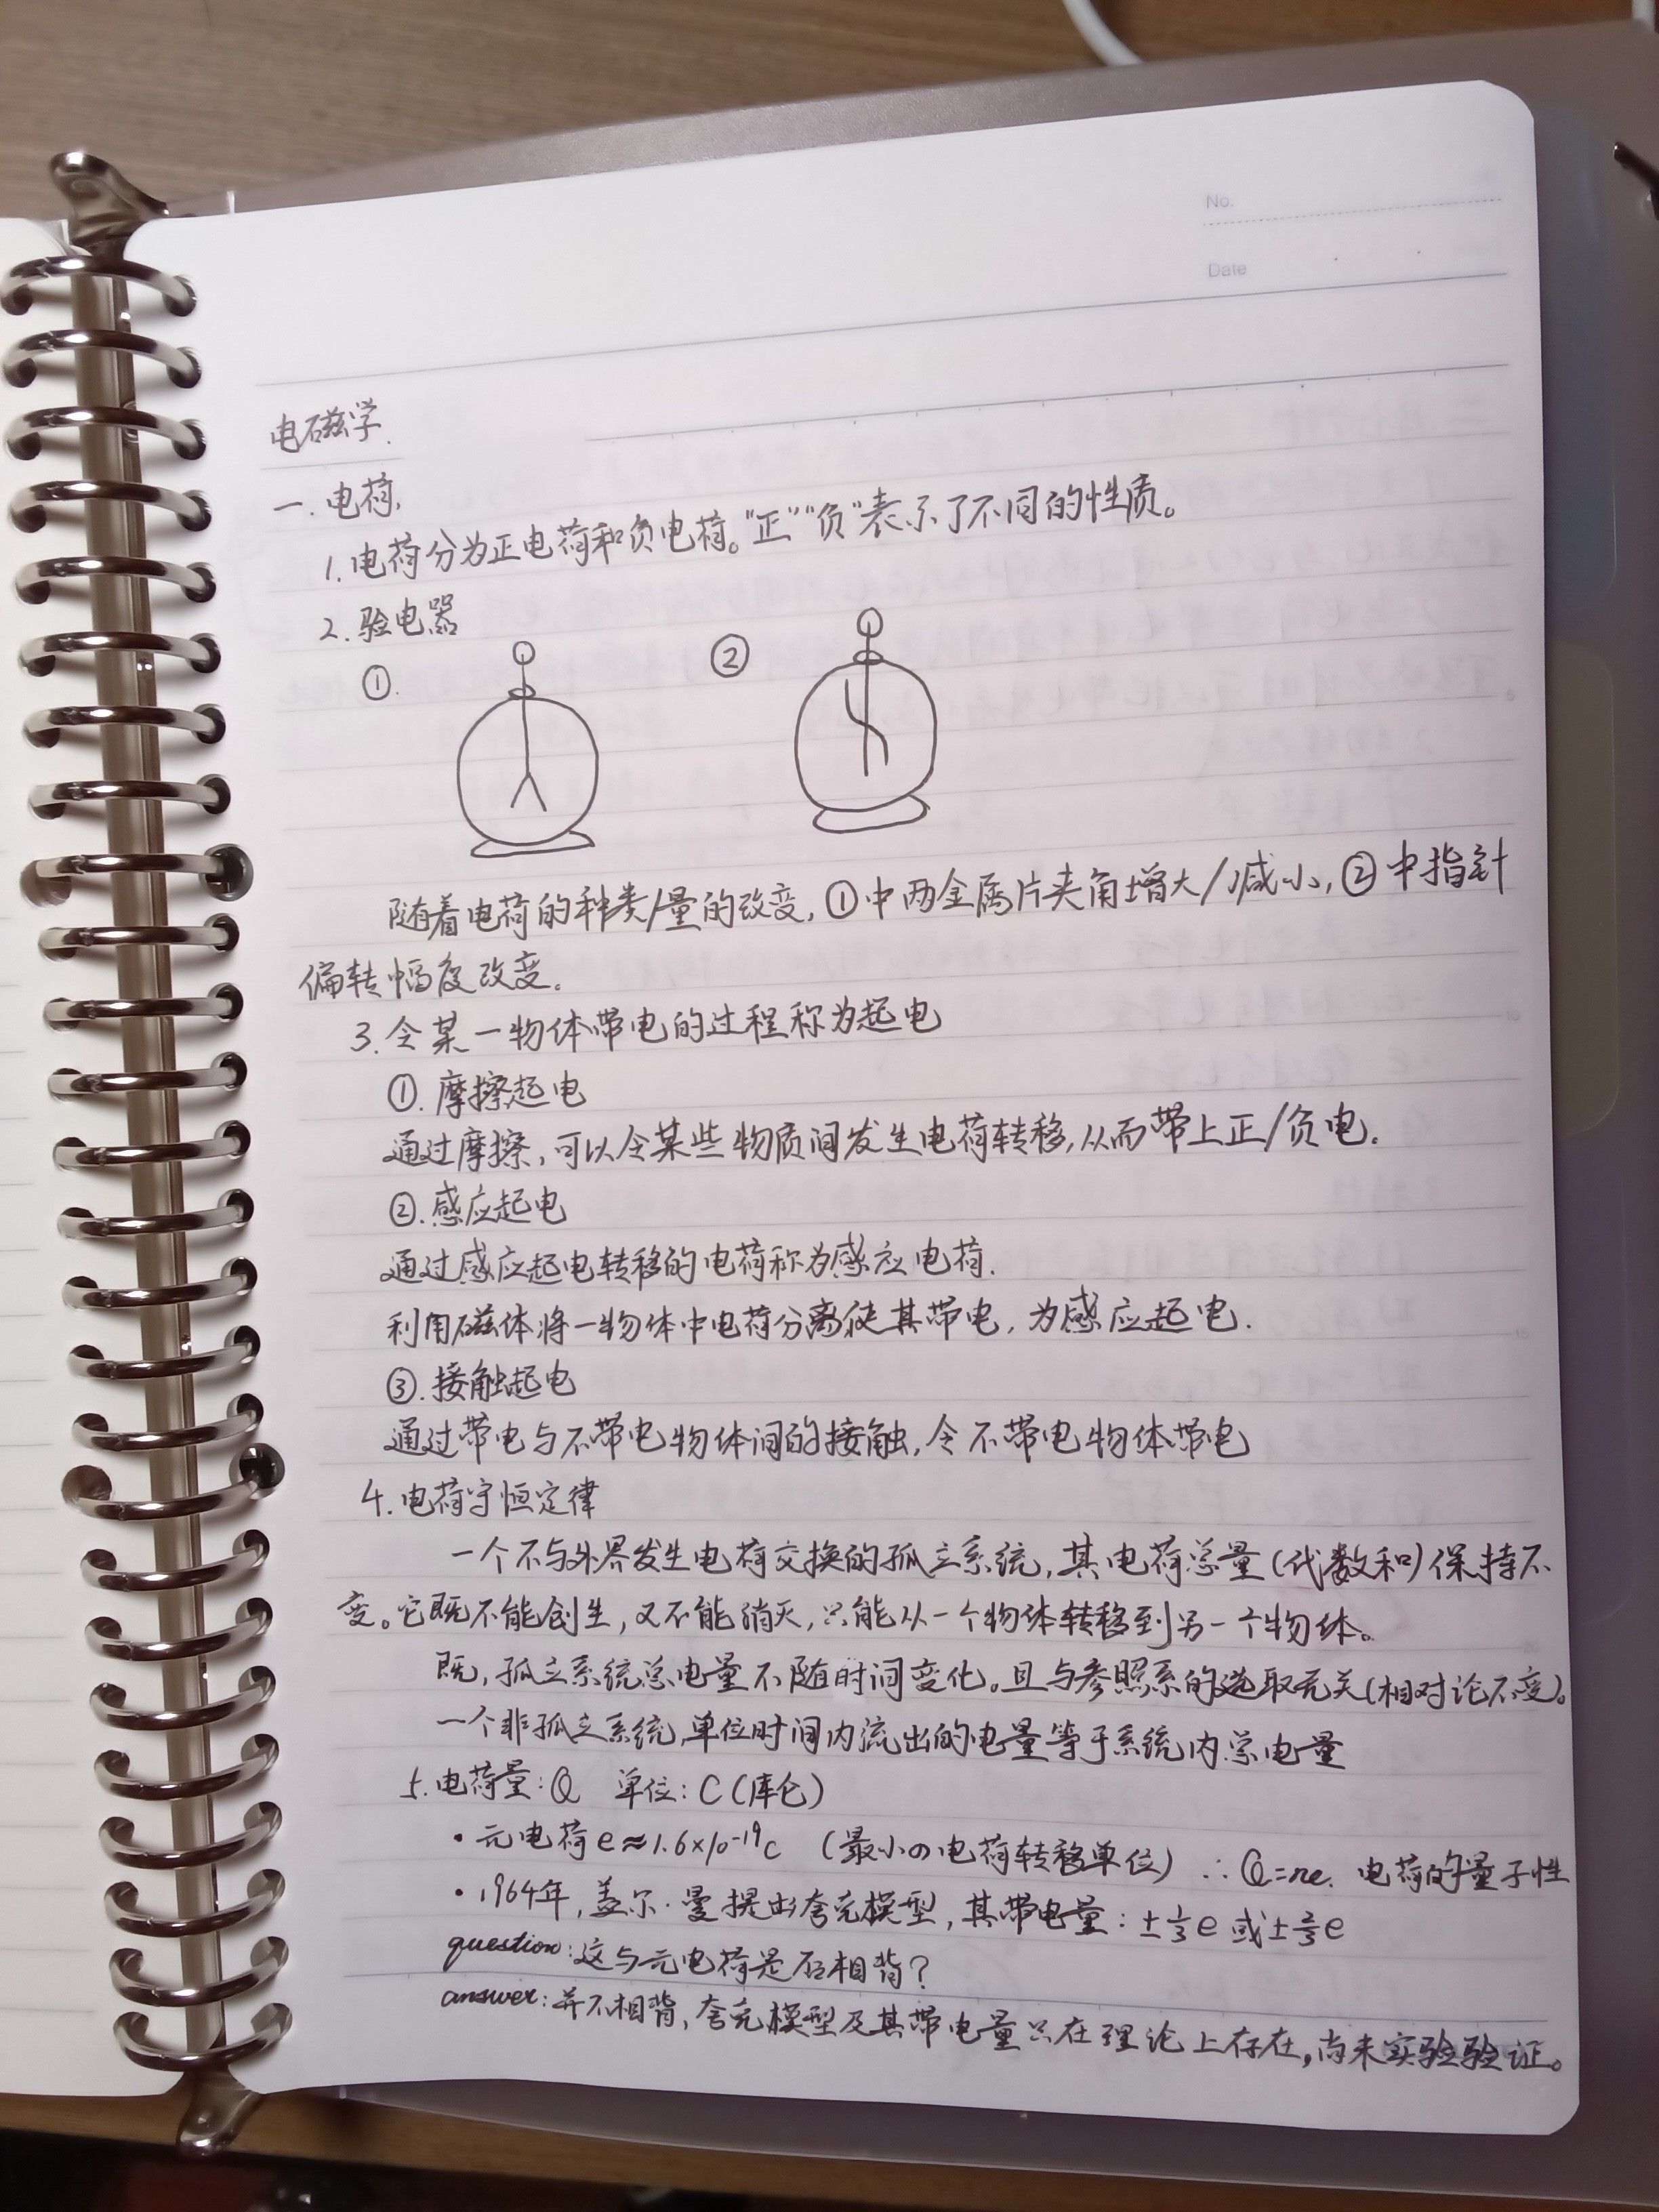 No.
Date
电磁学.
一. 电荷.
1. 电荷分为正电荷和负电荷。“正”“负”表示了不同的性质。
2. 验电器
①. ②
随着电荷的种类/量的改变, ①中两金属片夹角增大/减小, ②中指针
偏转幅度改变。
3. 令某一物体带电的过程称为起电
①. 摩擦起电
通过摩擦, 可以令某些物质间发生电荷转移, 从而带上正/负电.
②. 感应起电
通过感应起电转移的电荷称为感应电荷.
利用磁体将一物体中电荷分离使其带电, 为感应起电.
③. 接触起电
通过带电与不带电物体间的接触, 令不带电物体带电
4. 电荷守恒定律
一个不与外界发生电荷交换的孤立系统, 其电荷总量(代数和)保持不
变。它既不能创生, 又不能消灭, 只能从一个物体转移到另一个物体。
既, 孤立系统总电量不随时间变化。且与参照系的选取无关(相对论不变)。
一个非孤立系统, 单位时间内流出的电量等于系统内总电量
5. 电荷量: Q 单位: C (库仑)
• 元电荷 e≈1.6×10⁻¹⁹C (最小の电荷转移单位) ∴ Q=ne. 电荷的量子性
• 1964年, 盖尔·曼提出夸克模型, 其带电量: ±⅓e 或 ±⅔e
question: 这与元电荷是否相背?
answer: 并不相背, 夸克模型及其带电量只在理论上存在, 尚未实验验证。